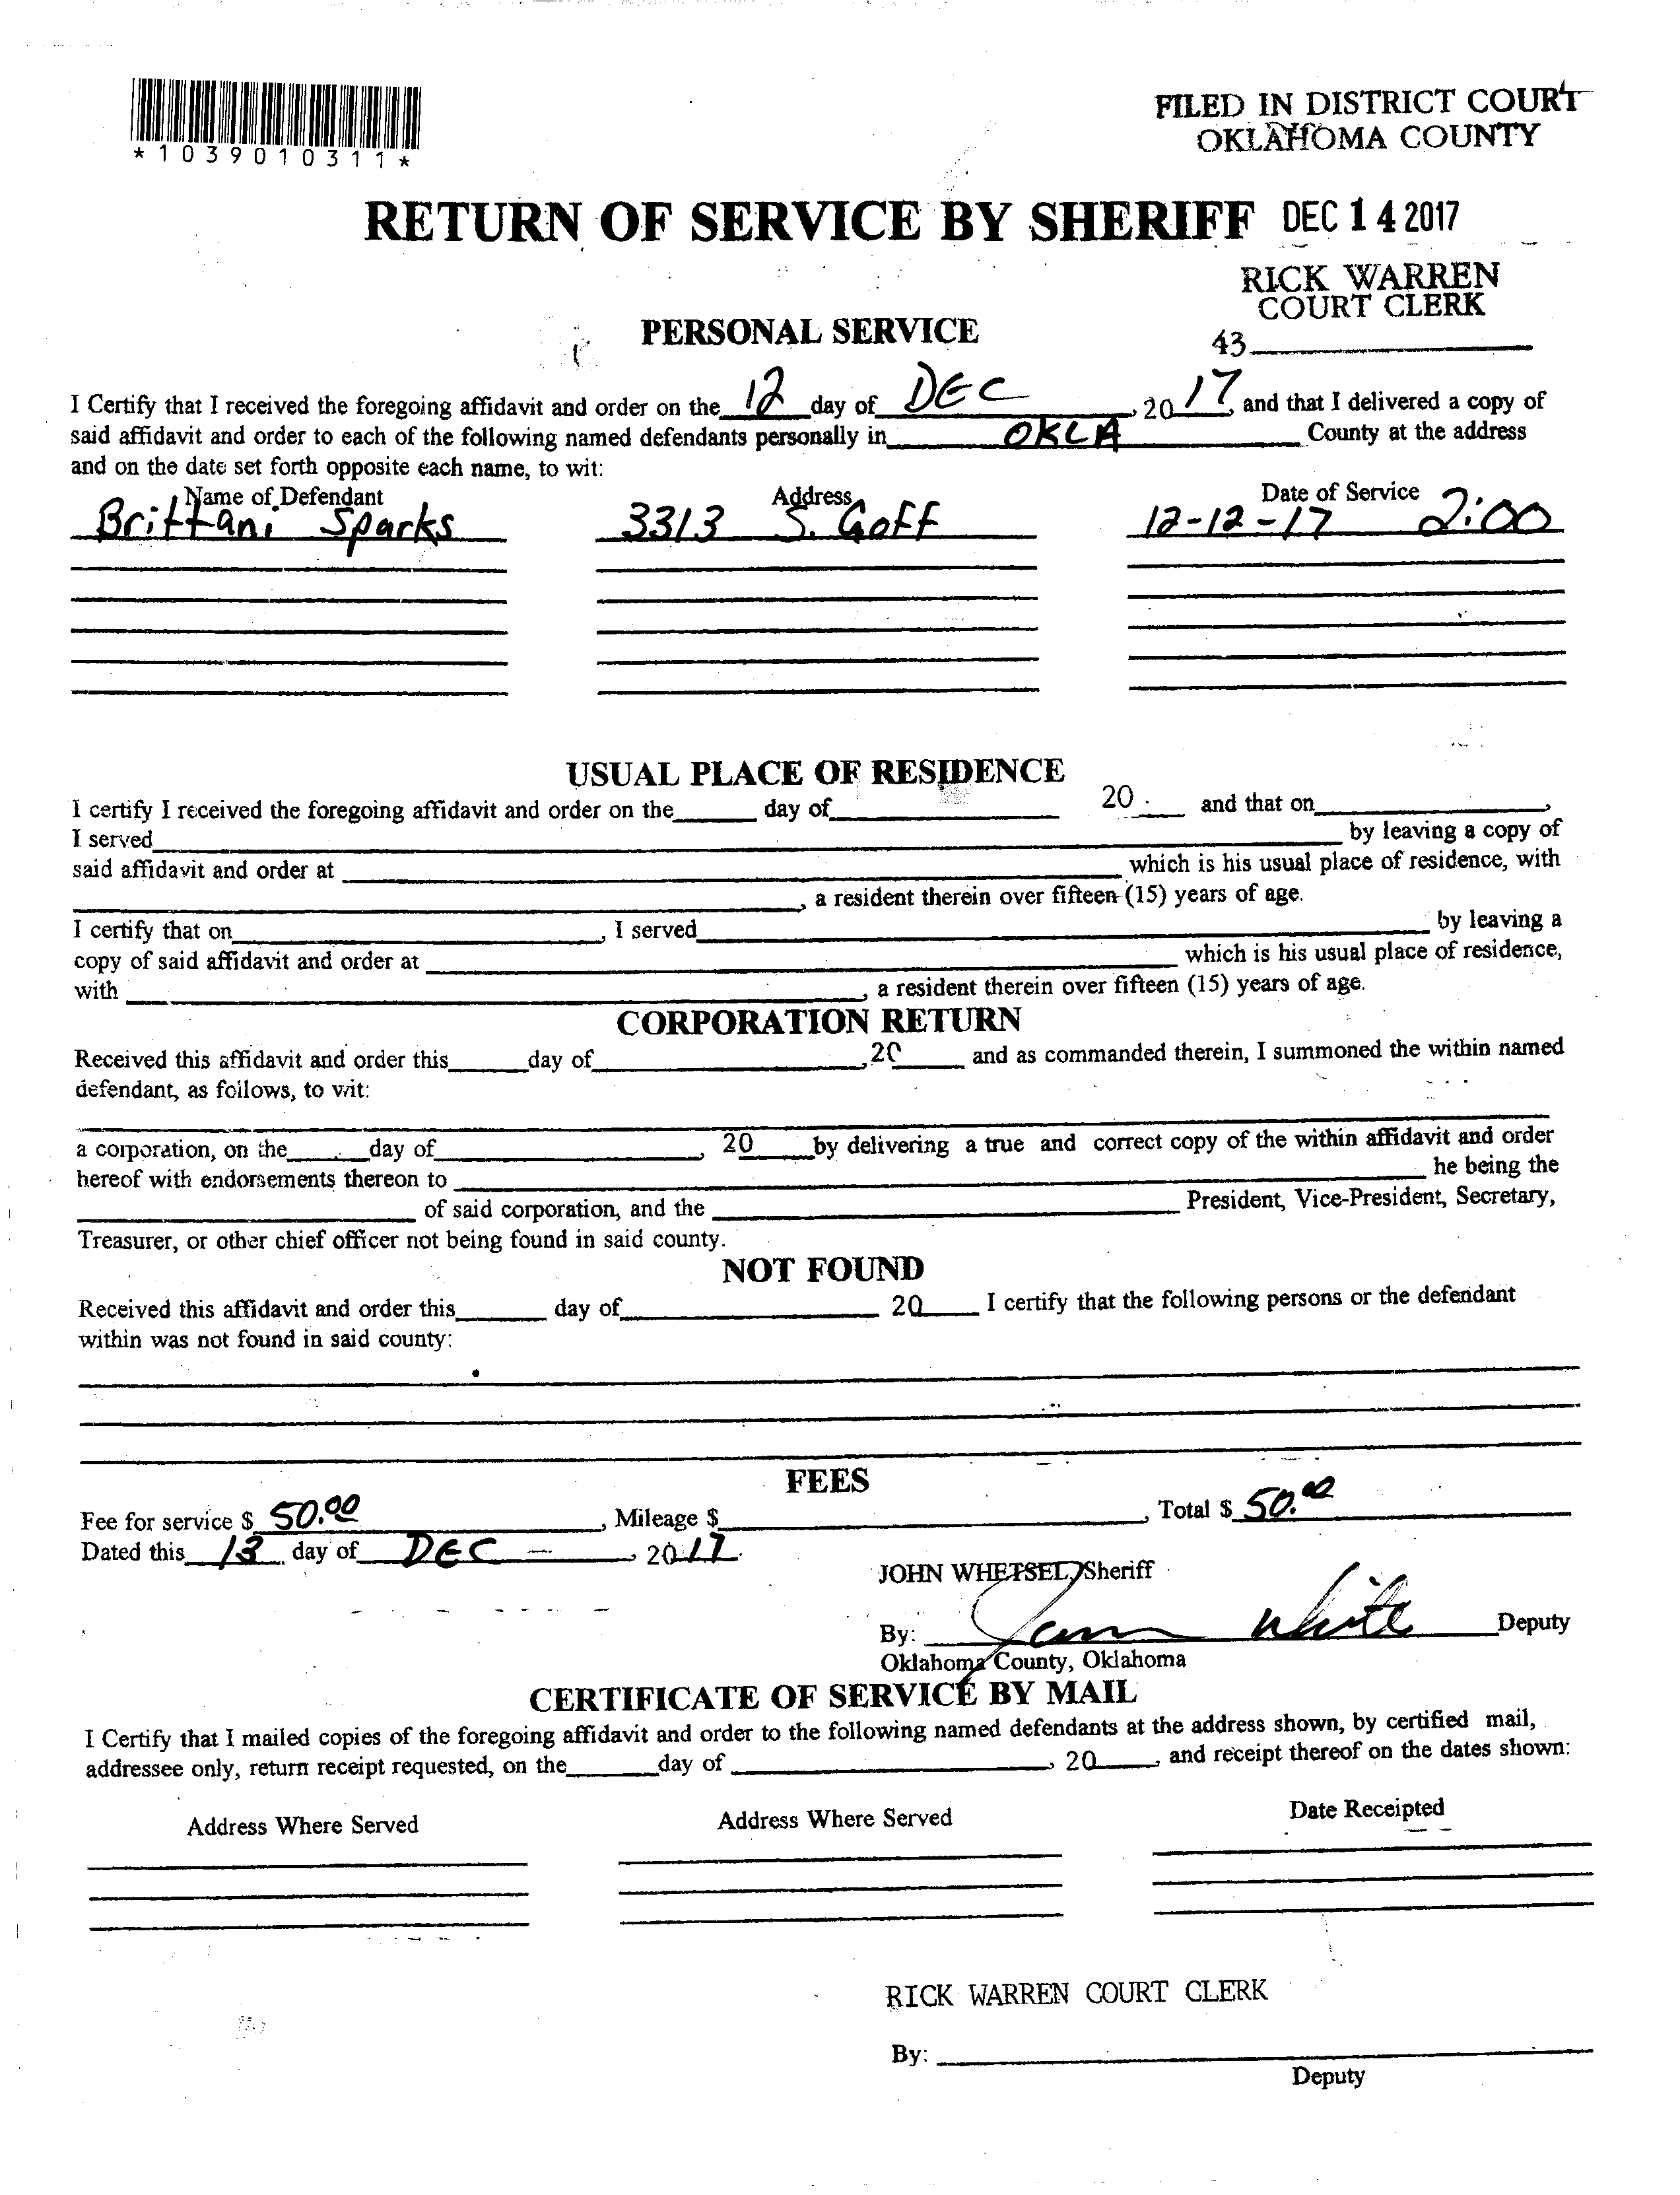 FILED IN DISTRICT COURT
OKLAHOMA COUNTY
*1039010311*
RETURN OF SERVICE BY SHERIFF DEC 14 2017
RICK WARREN
COURT CLERK
PERSONAL SERVICE
43
I Certify that I received the foregoing affidavit and order on the 12 day of DEC, 2017, and that I delivered a copy of
said affidavit and order to each of the following named defendants personally in OKLA County at the address
and on the date set forth opposite each name, to wit:
Name of Defendant Address Date of Service
Brittani Sparks 3313 S. Goff 12-12-17 2:00
USUAL PLACE OF RESIDENCE
I certify I received the foregoing affidavit and order on the day of 20 and that on ,
I served by leaving a copy of
said affidavit and order at which is his usual place of residence, with
, a resident therein over fifteen (15) years of age.
I certify that on , I served by leaving a
copy of said affidavit and order at which is his usual place of residence,
with , a resident therein over fifteen (15) years of age.
CORPORATION RETURN
Received this affidavit and order this day of , 20 and as commanded therein, I summoned the within named
defendant, as follows, to wit:
a corporation, on the day of , 20 by delivering a true and correct copy of the within affidavit and order
hereof with endorsements thereon to he being the
of said corporation, and the President, Vice-President, Secretary,
Treasurer, or other chief officer not being found in said county.
NOT FOUND
Received this affidavit and order this day of 20 I certify that the following persons or the defendant
within was not found in said county:
FEES
Fee for service $ 50.00, Mileage $ , Total $ 50.00
Dated this 13 day of DEC - , 2017.
JOHN WHETSEL, Sheriff
By: White Deputy
Oklahoma County, Oklahoma
CERTIFICATE OF SERVICE BY MAIL
I Certify that I mailed copies of the foregoing affidavit and order to the following named defendants at the address shown, by certified mail,
addressee only, return receipt requested, on the day of , 20 , and receipt thereof on the dates shown:
Address Where Served Address Where Served Date Receipted
RICK WARREN COURT CLERK
By:
Deputy